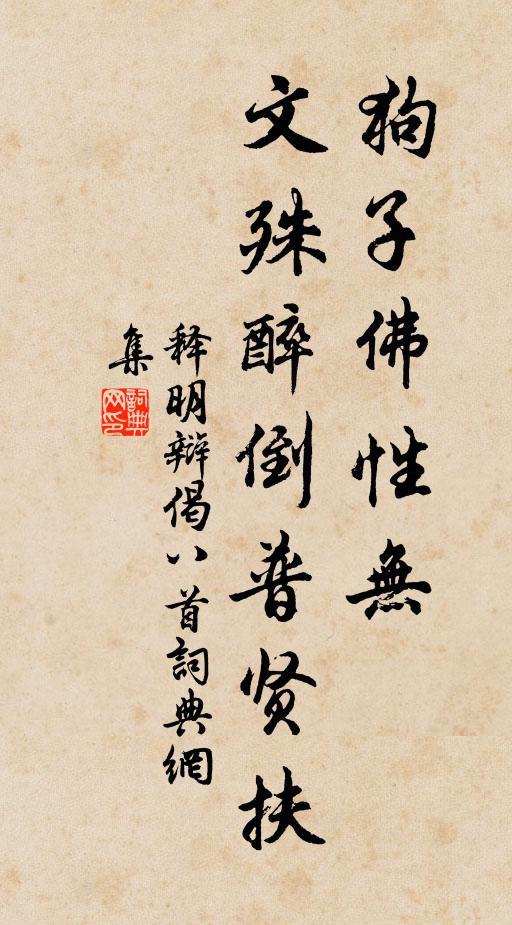 狗子佛性無
文殊醉倒普贤扶
释明辩偈八首詞典網
集
詞典网印